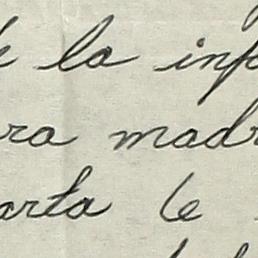 la inf
ra madr
arta le